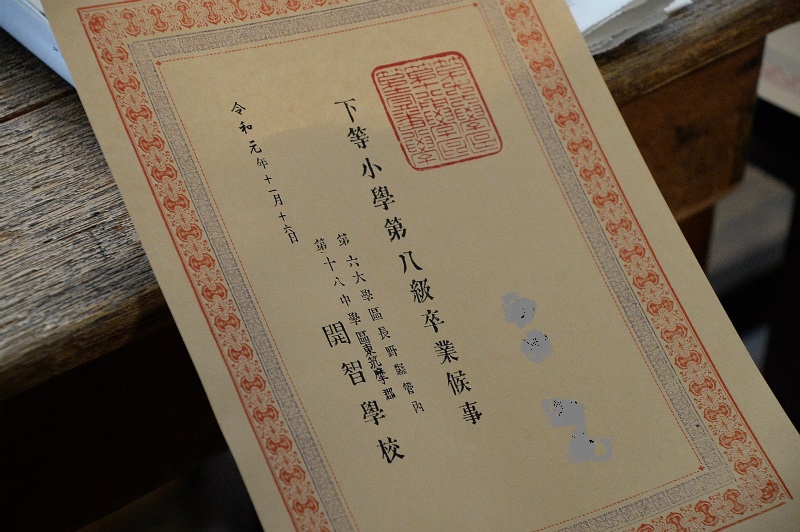 下等小學第八級卒業候事
第六大學區長野縣管內
第十八中學區東筑摩郡
開智學校
令和元年十一月十六日